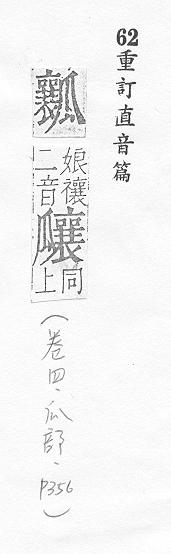 62重訂直音篇
瓤
娘禳
二音
同
上
(卷四、瓜部、P356)